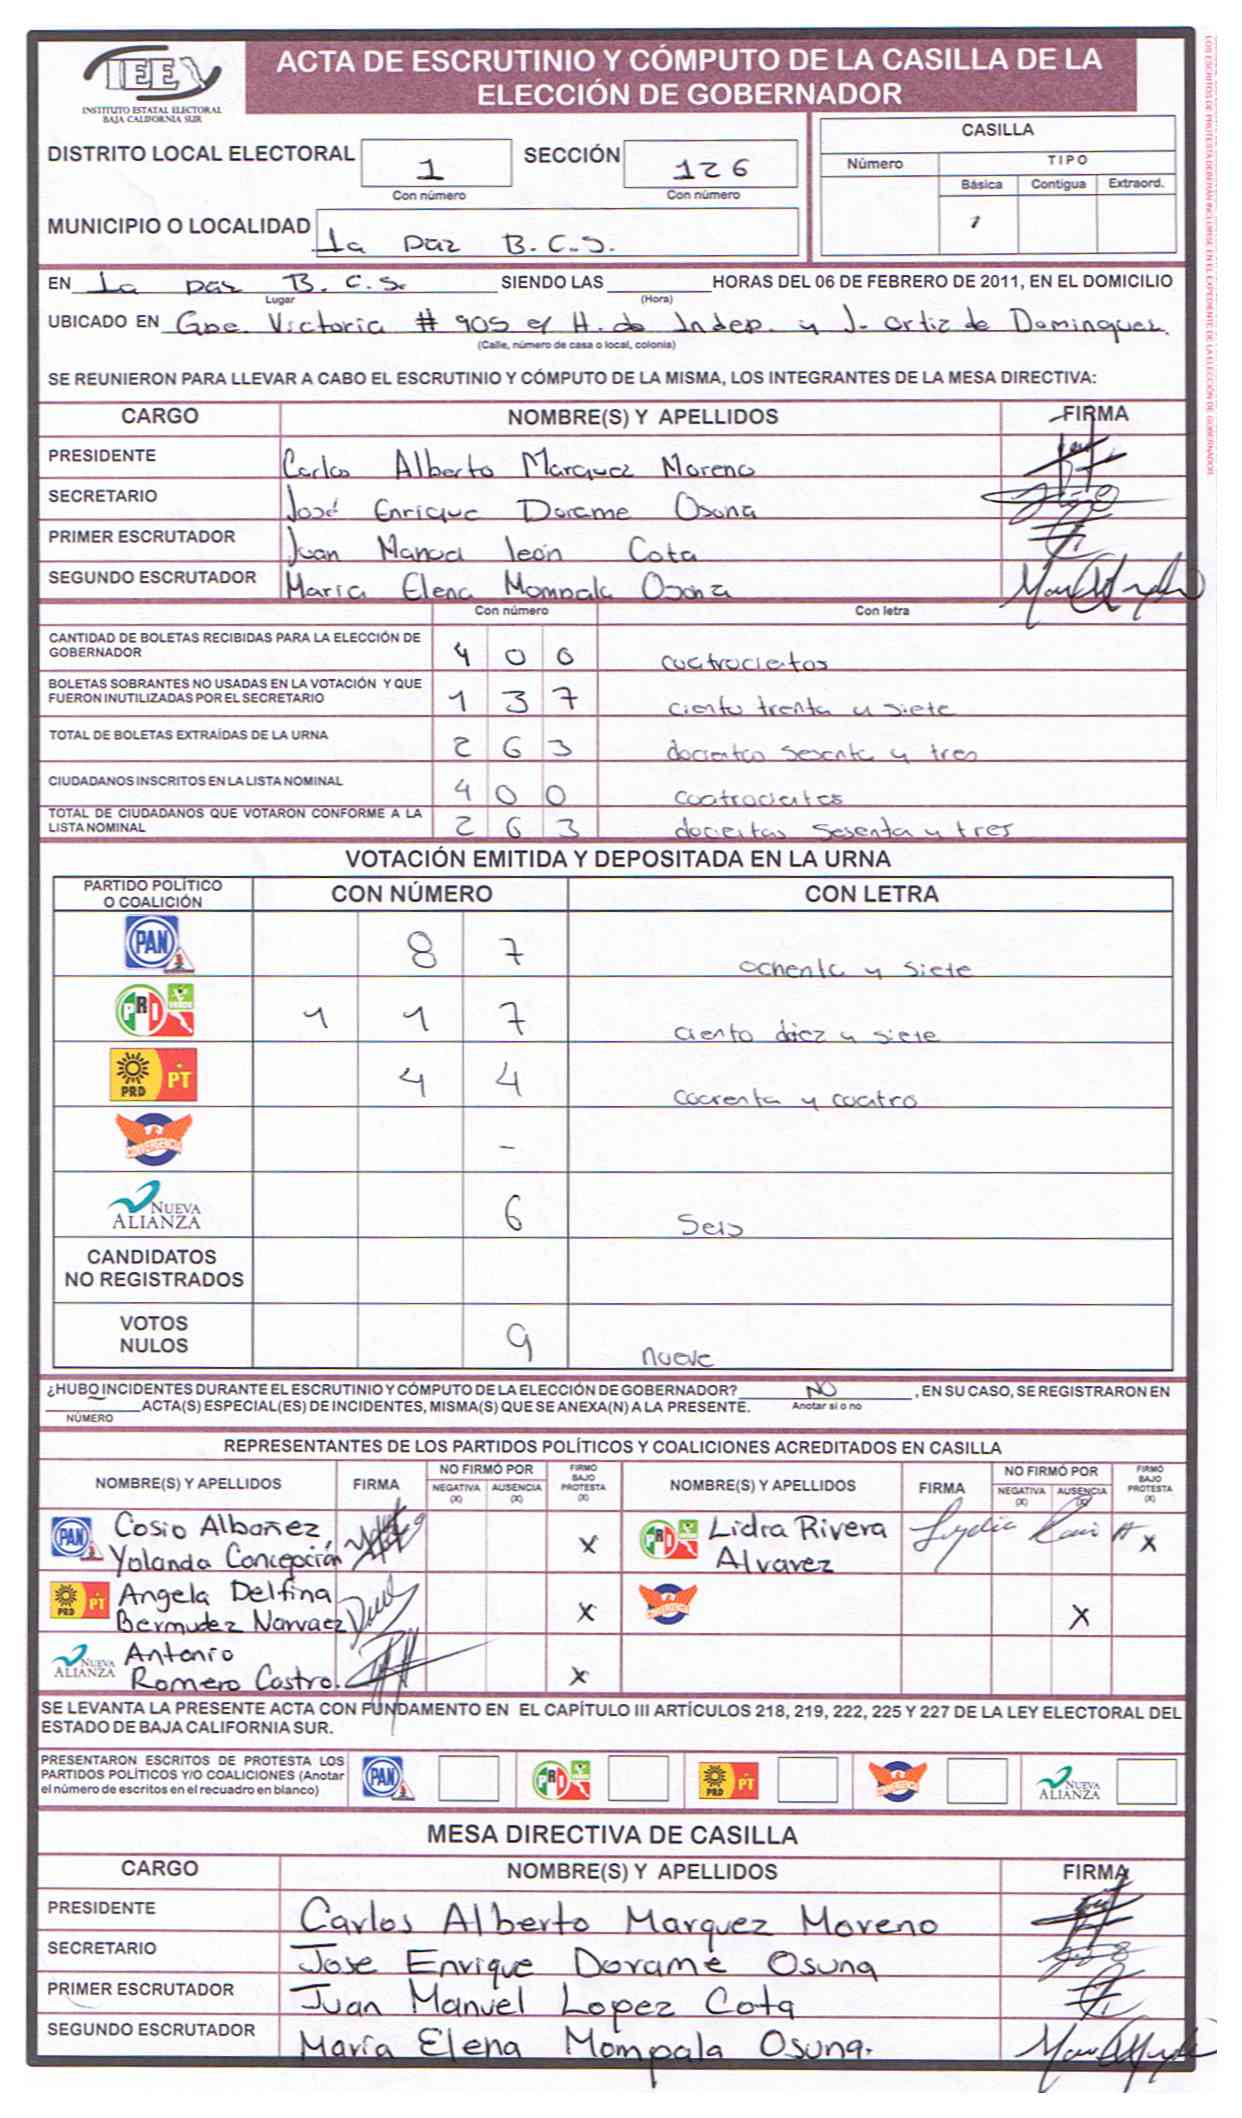 IEE
INSTITUTO ESTATAL ELECTORAL
BAJA CALIFORNIA SUR
ACTA DE ESCRUTINIO Y CÓMPUTO DE LA CASILLA DE LA
ELECCIÓN DE GOBERNADOR
DISTRITO LOCAL ELECTORAL 1 SECCIÓN 126
Con número Con número
MUNICIPIO O LOCALIDAD La Paz B.C.S.
CASILLA
Número TIPO
Básica Contigua Extraord.
1
EN La Paz B.C.S. SIENDO LAS HORAS DEL 06 DE FEBRERO DE 2011, EN EL DOMICILIO
Lugar (Hora)
UBICADO EN Gpe. Victoria # 905 e/ H. de Indep. y J. Ortiz de Dominguez.
(Calle, número de casa o local, colonia)
SE REUNIERON PARA LLEVAR A CABO EL ESCRUTINIO Y CÓMPUTO DE LA MISMA, LOS INTEGRANTES DE LA MESA DIRECTIVA:
CARGO NOMBRE(S) Y APELLIDOS FIRMA
PRESIDENTE Carlos Alberto Marquez Moreno
SECRETARIO José Enrique Dorame Osuna
PRIMER ESCRUTADOR Juan Manuel león Cota
SEGUNDO ESCRUTADOR María Elena Mompala Osuna
Con número Con letra
CANTIDAD DE BOLETAS RECIBIDAS PARA LA ELECCIÓN DE
GOBERNADOR 4 0 0 cuatrocientos
BOLETAS SOBRANTES NO USADAS EN LA VOTACIÓN Y QUE
FUERON INUTILIZADAS POR EL SECRETARIO 1 3 7 ciento trenta y siete
TOTAL DE BOLETAS EXTRAÍDAS DE LA URNA 2 6 3 docientos sesenta y tres
CIUDADANOS INSCRITOS EN LA LISTA NOMINAL 4 0 0 cuatrocientos
TOTAL DE CIUDADANOS QUE VOTARON CONFORME A LA
LISTA NOMINAL 2 6 3 docientos sesenta y tres
VOTACIÓN EMITIDA Y DEPOSITADA EN LA URNA
PARTIDO POLÍTICO
O COALICIÓN CON NÚMERO CON LETRA
PAN 8 7 ochenta y siete
PRI VERDE 1 1 7 ciento diez y siete
PRD PT 4 4 cuarenta y cuatro
CONVERGENCIA -
NUEVA ALIANZA 6 Seis
CANDIDATOS
NO REGISTRADOS
VOTOS
NULOS 9 nueve
¿HUBO INCIDENTES DURANTE EL ESCRUTINIO Y CÓMPUTO DE LA ELECCIÓN DE GOBERNADOR? NO , EN SU CASO, SE REGISTRARON EN
ACTA(S) ESPECIAL(ES) DE INCIDENTES, MISMA(S) QUE SE ANEXA(N) A LA PRESENTE. Anotar si o no
NÚMERO
REPRESENTANTES DE LOS PARTIDOS POLÍTICOS Y COALICIONES ACREDITADOS EN CASILLA
NOMBRE(S) Y APELLIDOS FIRMA NO FIRMÓ POR NEGATIVA (X) AUSENCIA (X) FIRMÓ BAJO PROTESTA (X) NOMBRE(S) Y APELLIDOS FIRMA NO FIRMÓ POR NEGATIVA (X) AUSENCIA (X) FIRMÓ BAJO PROTESTA (X)
PAN Cosio Albañez X PRI Lidia Rivera X
Yolanda Concepción Alvarez
PRD PT Angela Delfina X CONVERGENCIA X
Bermudez Narvaez
NUEVA ALIANZA Antonio
Romero Castro. X
SE LEVANTA LA PRESENTE ACTA CON FUNDAMENTO EN EL CAPÍTULO III ARTÍCULOS 218, 219, 222, 225 Y 227 DE LA LEY ELECTORAL DEL
ESTADO DE BAJA CALIFORNIA SUR.
PRESENTARON ESCRITOS DE PROTESTA LOS
PARTIDOS POLÍTICOS Y/O COALICIONES (Anotar
el número de escritos en el recuadro en blanco)
PAN PRI PRD PT CONVERGENCIA NUEVA ALIANZA
MESA DIRECTIVA DE CASILLA
CARGO NOMBRE(S) Y APELLIDOS FIRMA
PRESIDENTE Carlos Alberto Marquez Moreno
SECRETARIO Jose Enrique Dorame Osuna
PRIMER ESCRUTADOR Juan Manuel Lopez Cota
SEGUNDO ESCRUTADOR María Elena Mompala Osuna.